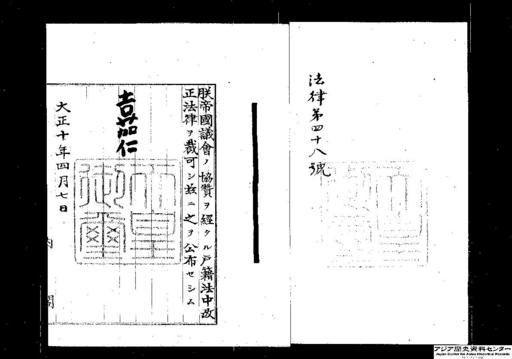 法律第四十八號
朕帝國議會ノ協贊ヲ經タル戸籍法中改
正法律ヲ裁可シ茲ニ之ヲ公布セシム
嘉仁
天皇
御璽
大正十年四月七日
内閣
アジア歴史資料センター
Japan Center for Asian Historical Records